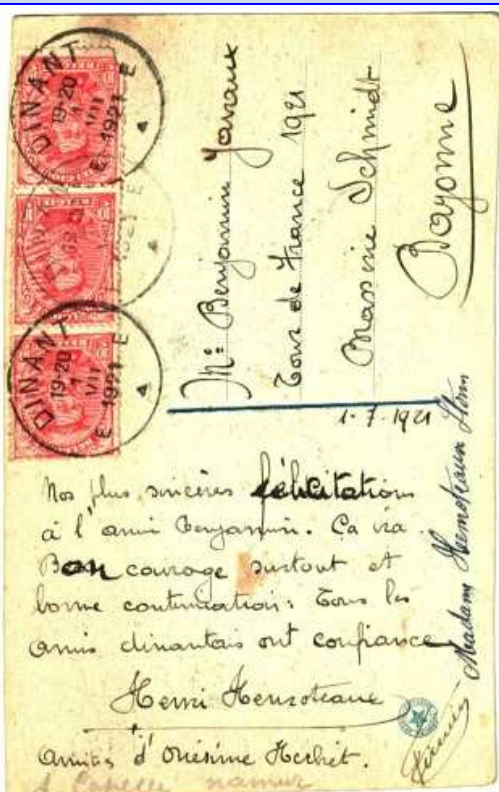 DINANT
19-20
1
VII
1921
E E
DINANT
19-20
1
VII
1921
E E
Mr Benjamin Javaux
Tour de France 1921
Maxime Schmidt
Bayonne
1-7-1921
Nos plus sincères félicitations
à l'ami Benjamin. Ca va
Bon courage surtout et
bonne continuation: Tous les
amis dinantais ont confiance
Henri
Amitiés d'Onésime Herbet.
Namur
Madame